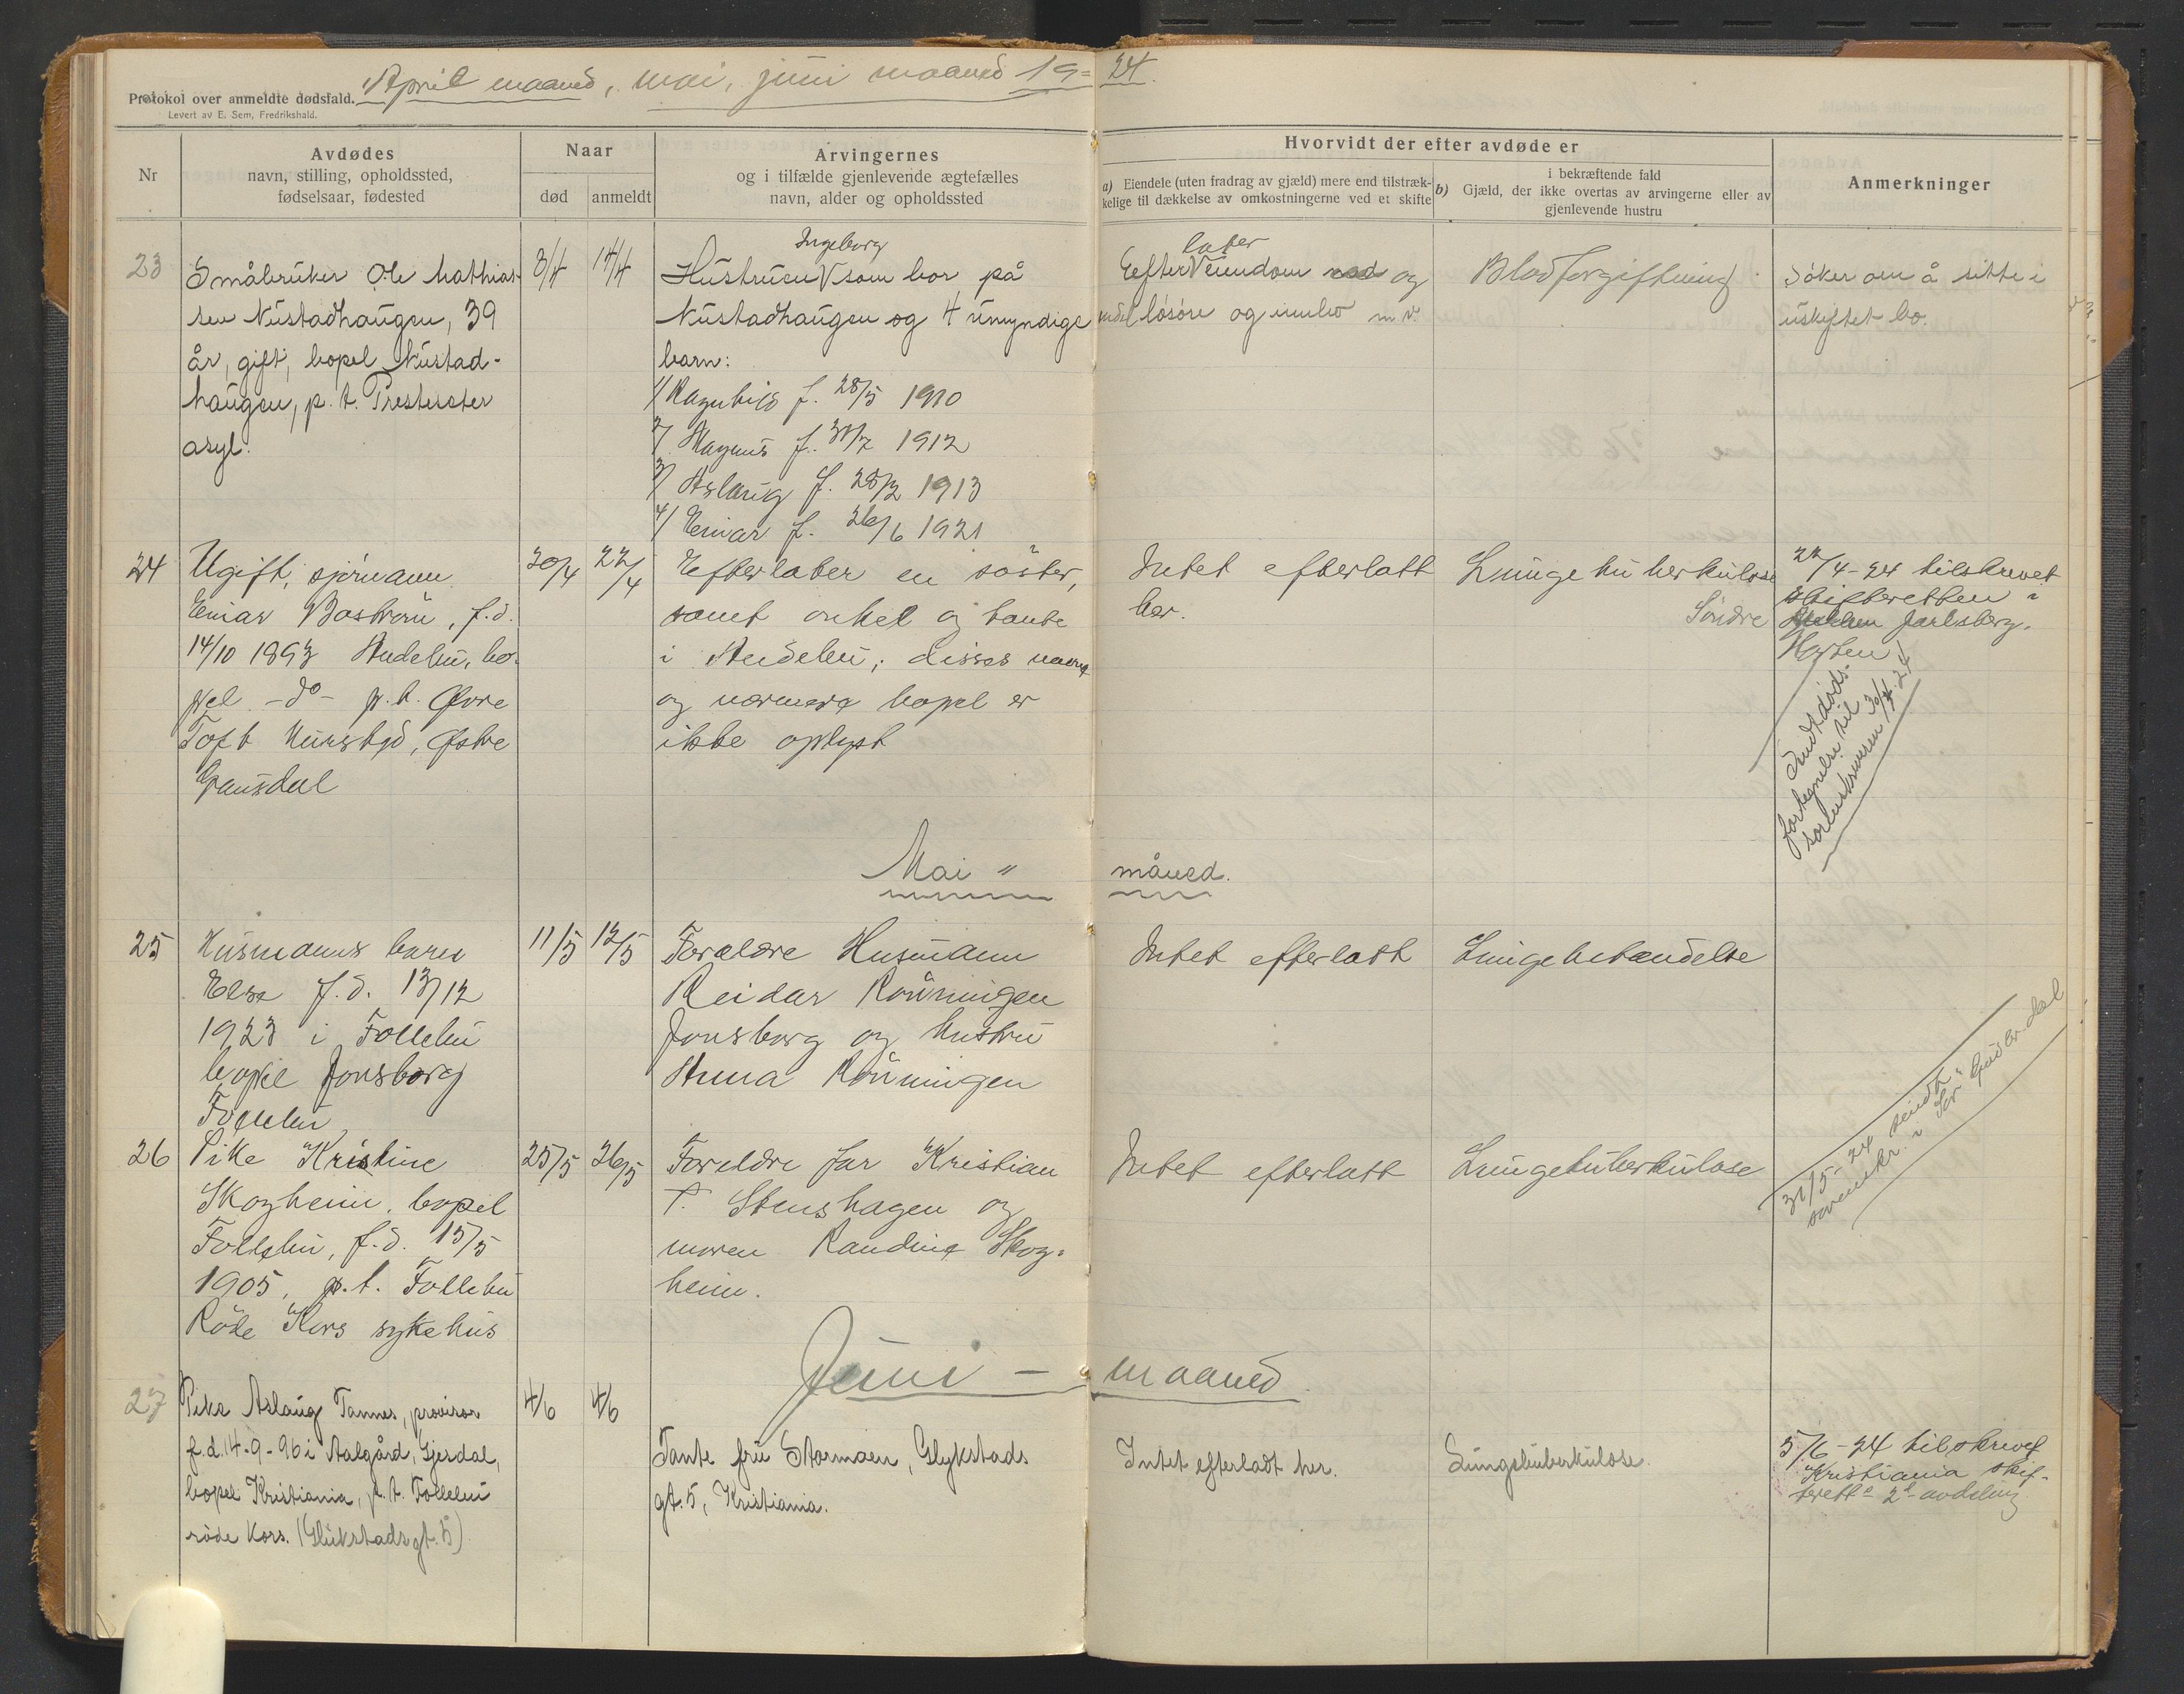 April maaned, mai, juni maaned 19=24.
Protokol over anmeldte dødsfald.
Levert av E. Sem, Fredrikshald.
Nr
Avdødes
navn, stilling, opholdssted,
fødselsaar, fødested
Naar
død
anmeldt
Arvingernes
og i tilfælde gjenlevende ægtefælles
navn, alder og opholdssted
Hvorvidt der efter avdøde er
a) Eiendele (uten fradrag av gjæld) mere end tilstræk-
kelige til dækkelse av omkostningerne ved et skifte
i bekræftende fald
b) Gjæld, der ikke overtas av arvingerne eller av
gjenlevende hustru
Anmerkninger
23
Småbruker Ole Mathias-
sen Nustadhaugen, 39
år, gift, bopel Nustad-
haugen, p. t. Presteseter
asyl.
8/4
14/4
Ingeborg
Hustruen V som bor på
Nustadhaugen og 4 umyndige
barn:
1/ Ragnhild f. 28/5 1910
2/ Magnus f. 31/7 1912
3/ Aslaug f. 28/2 1913
4/ Einar f. 26/6 1921
later
Eefter V eiendom og
endel lösöre og innbo m. v.
Blodforgiftning
Söker om å sitte i
uskiftet bo.
24
Ugift, sjömann
Einar Boström, f.d.
14/10 1893 Andebu, bo-
pel -do- p.t. Øvre
Toft Kursted, Østre
Gausdal
20/4
22/4
Efterlater en söster,
samt onkel og tante
i Andebu; disses navne
og nærmere bopel er
ikke oplyst
Intet efterlatt
her.
Lungetuberkulose
22/4-24 tilskrevet
skifteretten i
Söndre Jarlsberg.
Horten
Sendt döds-
fortegnelse til
sorenskriveren 30/4 24
Mai " måned.
25
Husmanns barn
Else f.d. 13/12
1923 i Follebu
bopel Jonsborg
Follebu
11/5
12/5
Forældre Husmann
Reidar Rönningen
Jonsborg og hustru
Anna Rönningen
Intet efterlatt
Lungebetændelse
26
Pike Kristine
Skogheim, bopel
Follebu, f.d. 15/5
1905, p.t. Follebu
Röde Kors sykehus
25/5
26/5
Foreldre far Kristian
T. Stenshagen og
moren Randine Skog-
heim.
Intet efterlatt
Lungetuberkulose
31/5-24 sendt
sorenskr. i Sör Gudbr.dal
Juni - maaned.
27
Pike Aslaug Tannes, provisor
f.d. 14-9-96 i Aalgård, Gjesdal,
bopel Kristiania, p.t. Follebu
röde Kors. (Glückstadsgt. 5)
4/6
4/6
Tante fru Stormoen, Glykstads
gt. 5, Kristiania.
Intet efterladt her.
Lungetuberkulose.
5/6-24 tilskrevet
Kristiania skif-
terett 2. avdeling